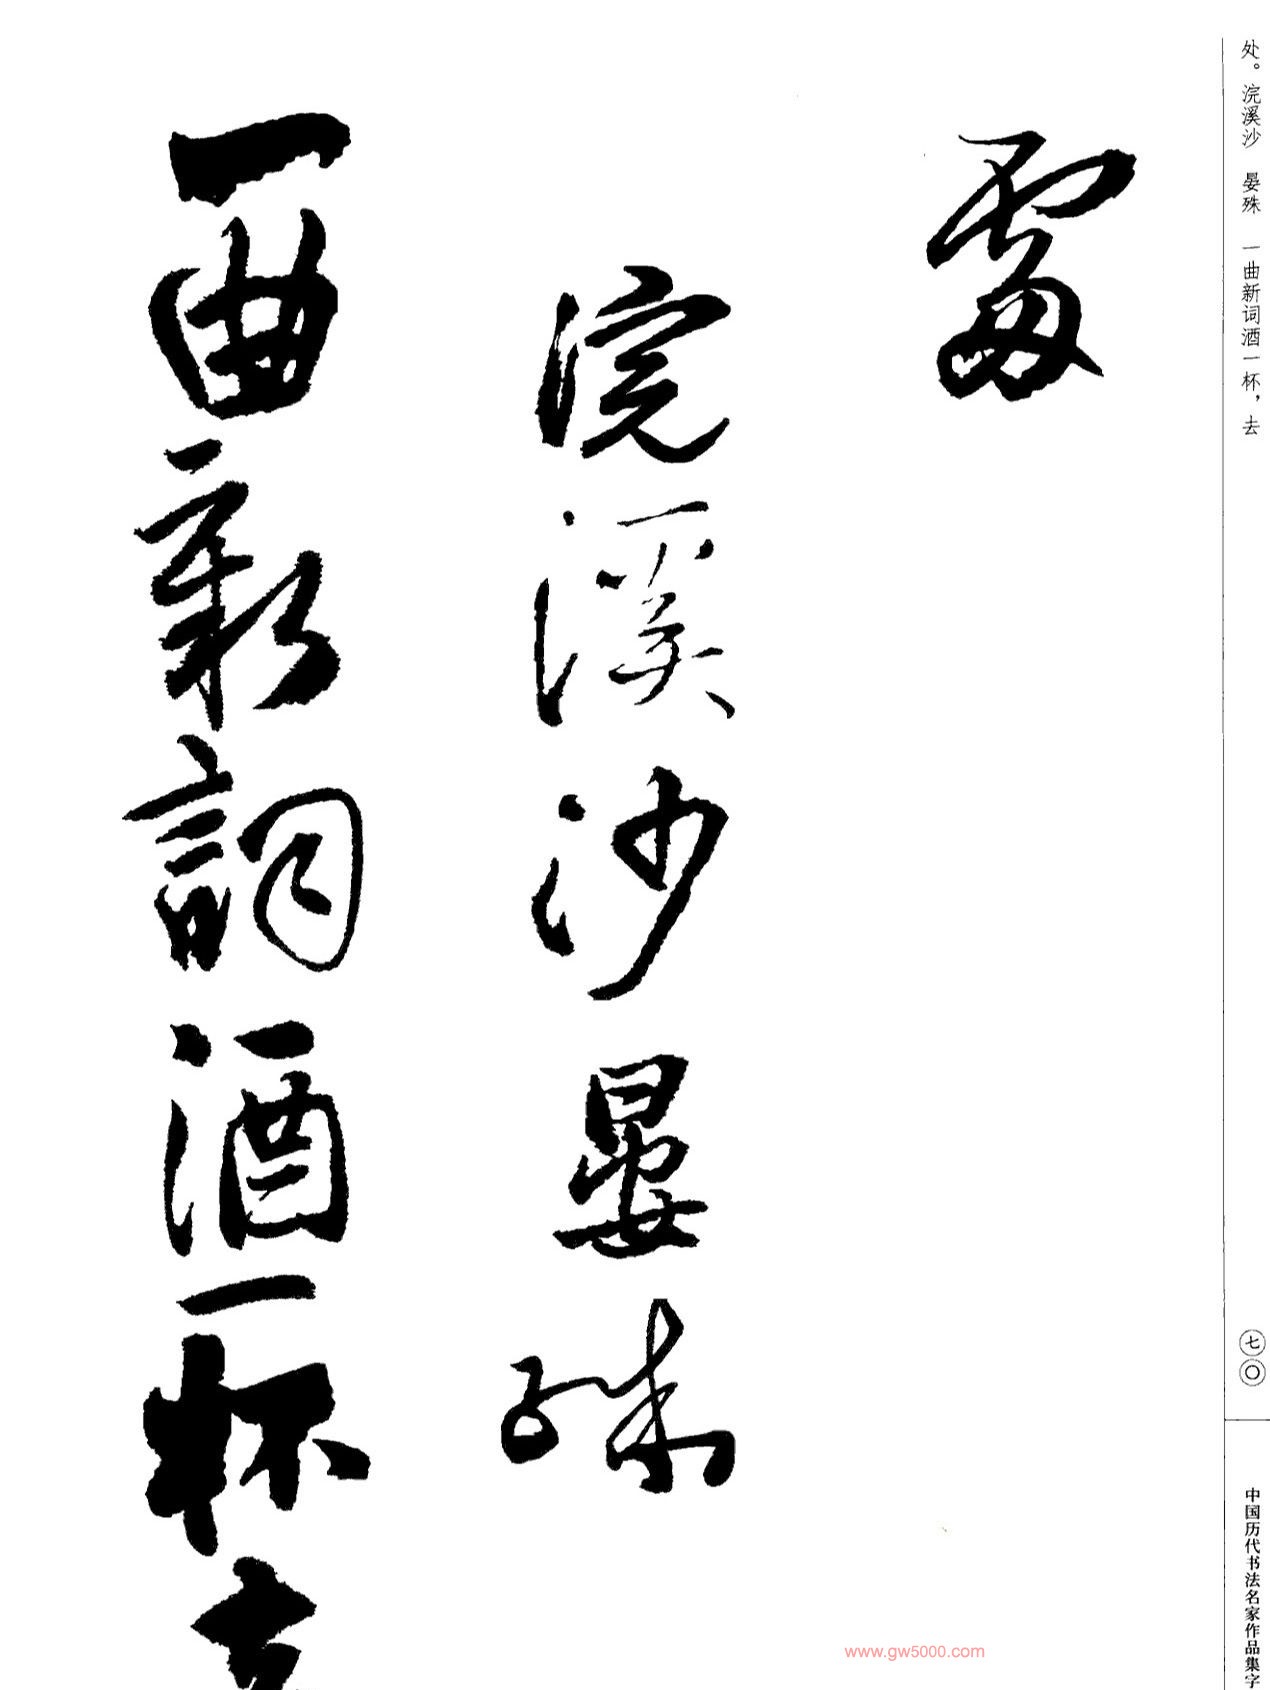 处。浣溪沙　晏殊　一曲新词酒一杯，去
七〇
中国历代书法名家作品集字
處
浣溪沙晏殊
一曲新詞酒一杯去
www.gw5000.com